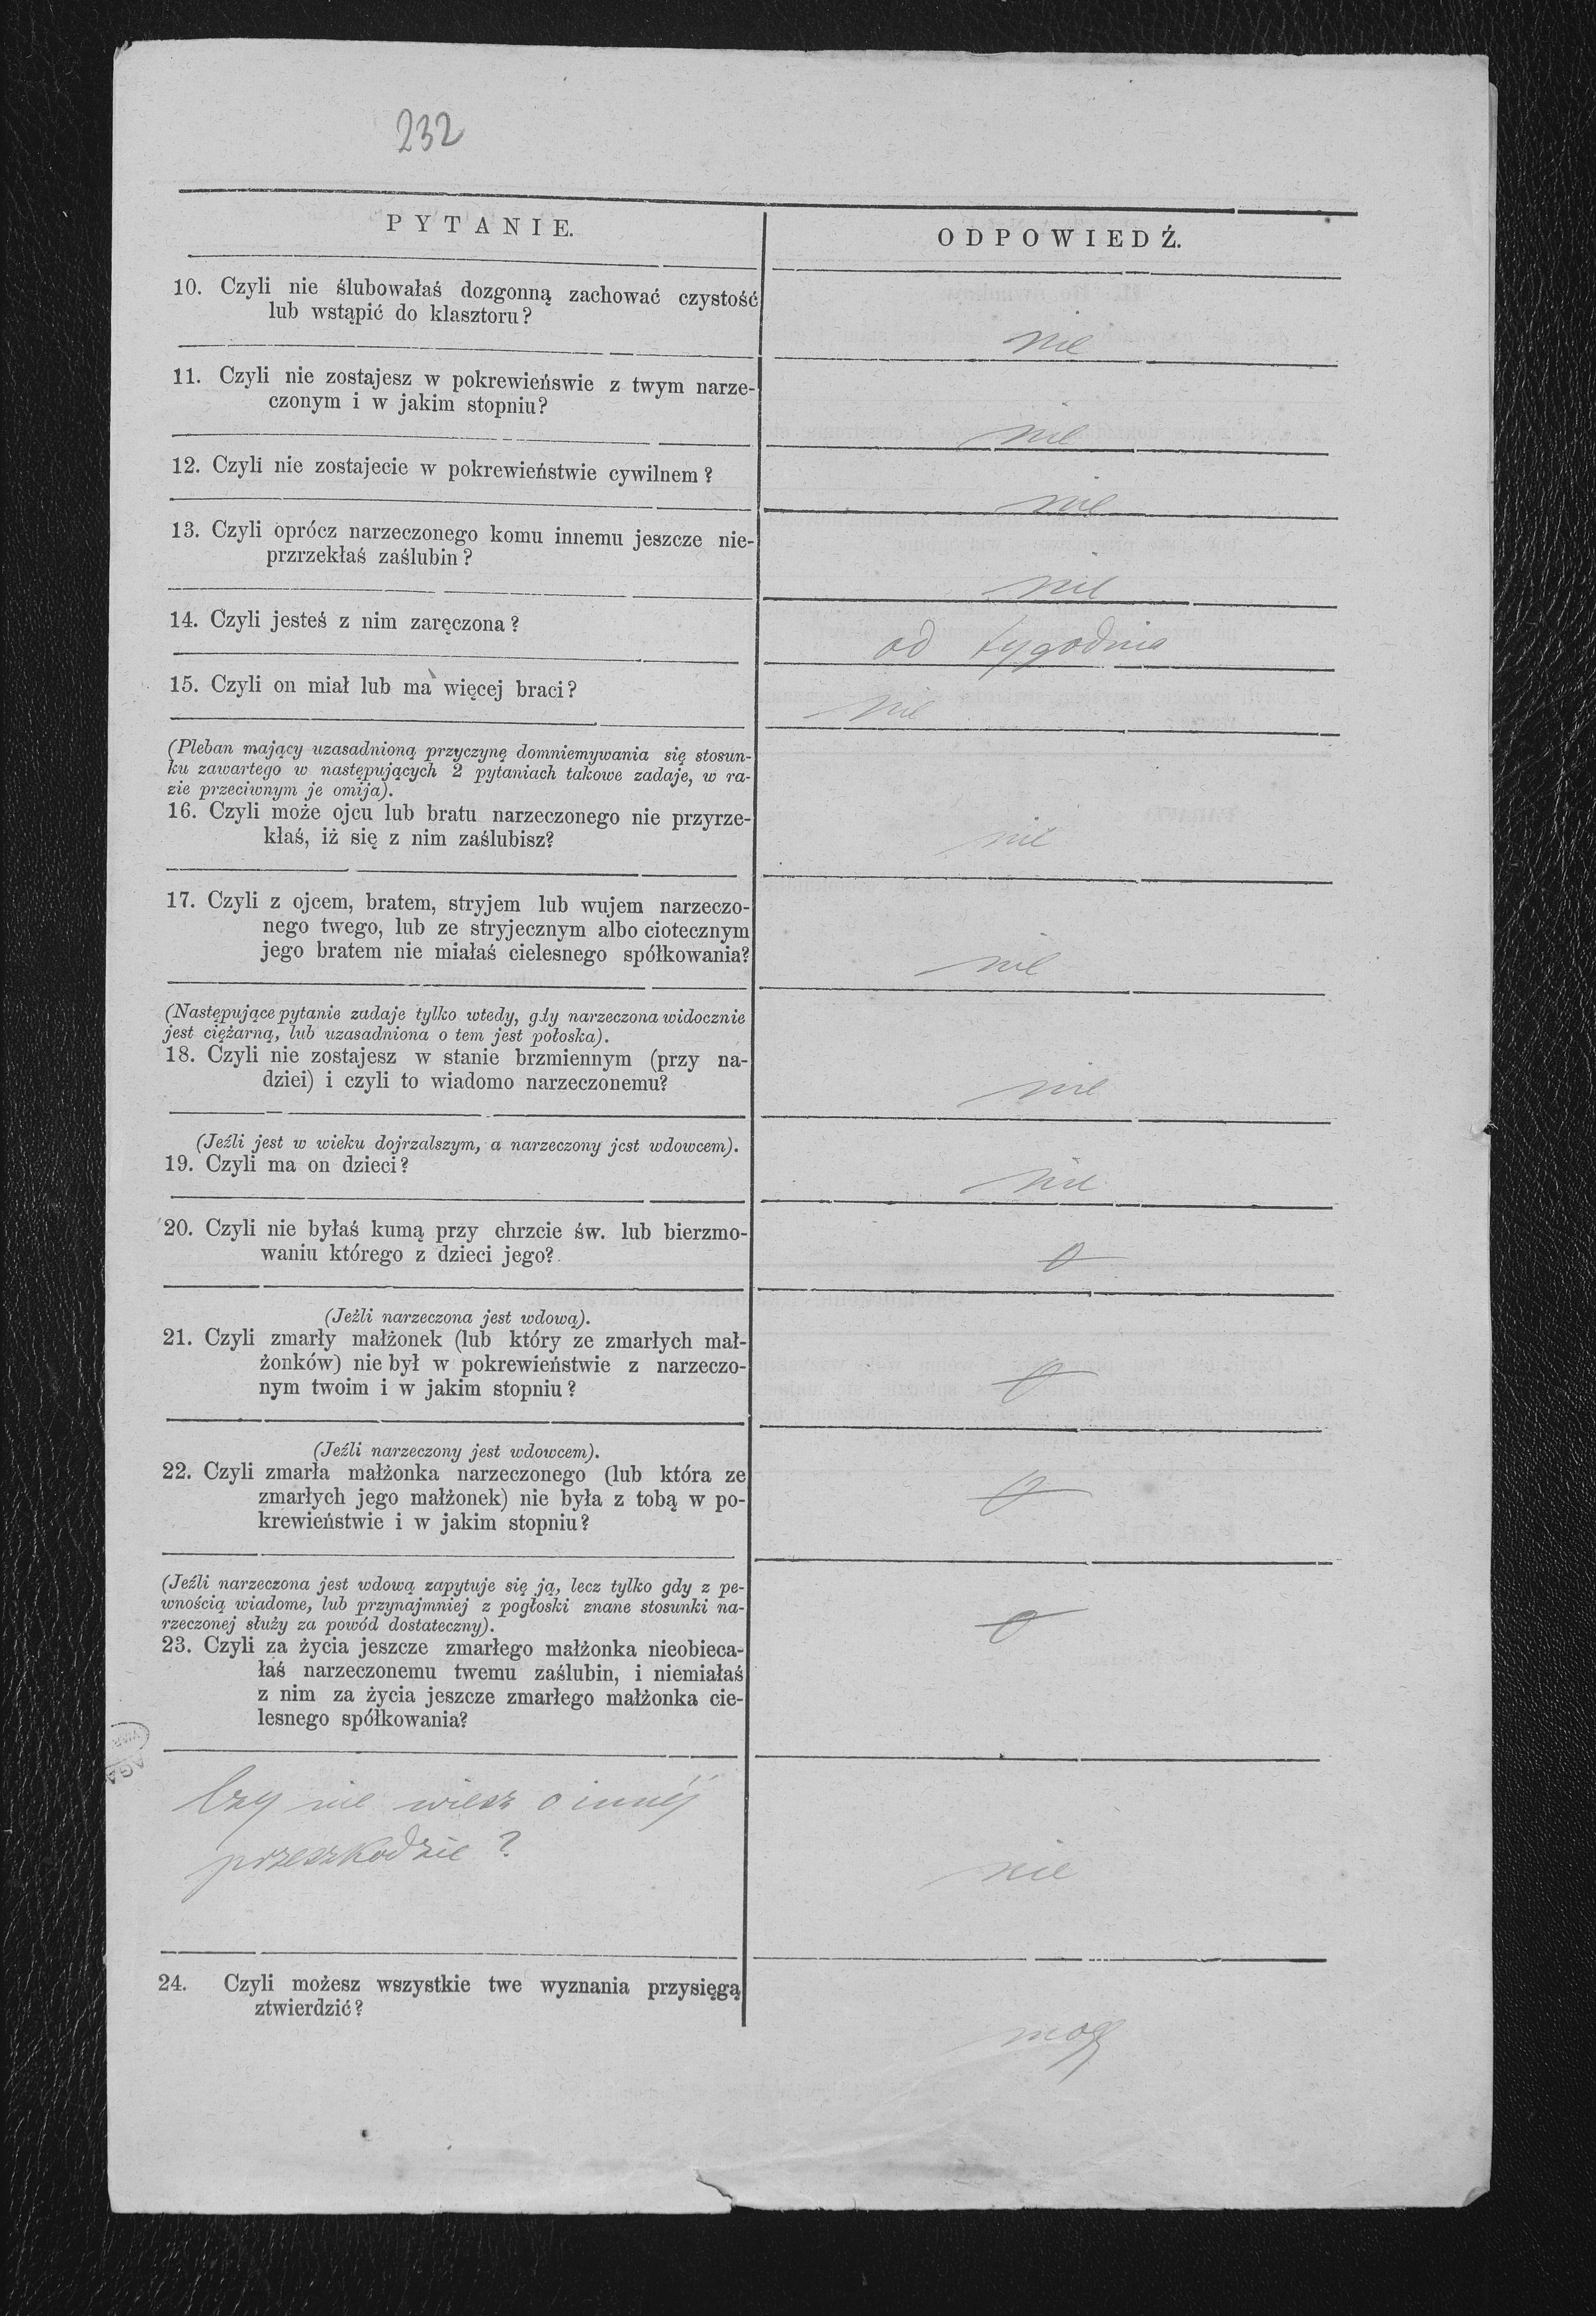 232
PYTANIE.
ODPOWIEDŹ.
10. Czyli nie ślubowałaś dozgonną zachować czystość
lub wstąpić do klasztoru?
nie
11. Czyli nie zostajesz w pokrewieńswie z twym narze-
czonym i w jakim stopniu?
nie
12. Czyli nie zostajecie w pokrewieństwie cywilnem?
nie
13. Czyli oprócz narzeczonego komu innemu jeszcze nie-
przrzekłaś zaślubin?
nie
14. Czyli jesteś z nim zaręczona?
od tygodnia
15. Czyli on miał lub ma więcej braci?
nie
(Pleban mający uzasadnioną przyczynę domniemywania się stosun-
ku zawartego w następujących 2 pytaniach takowe zadaje, w ra-
zie przeciwnym je omija).
16. Czyli może ojcu lub bratu narzeczonego nie przyrze-
kłaś, iż się z nim zaślubisz?
nie
17. Czyli z ojcem, bratem, stryjem lub wujem narzeczo-
nego twego, lub ze stryjecznym albo ciotecznym
jego bratem nie miałaś cielesnego spółkowania?
nie
(Następujące pytanie zadaje tylko wtedy, gdy narzeczona widocznie
jest ciężarną, lub uzasadniona o tem jest połoska).
18. Czyli nie zostajesz w stanie brzmiennym (przy na-
dziei) i czyli to wiadomo narzeczonemu?
nie
(Jeźli jest w wieku dojrzalszym, a narzeczony jcst wdowcem).
19. Czyli ma on dzieci?
nie
20. Czyli nie byłaś kumą przy chrzcie św. lub bierzmo-
waniu którego z dzieci jego?
0
(Jeźli narzeczona jest wdową).
21. Czyli zmarły małżonek (lub który ze zmarłych mał-
żonków) nie był w pokrewieństwie z narzeczo-
nym twoim i w jakim stopniu?
0
(Jeźli narzeczony jest wdowcem).
22. Czyli zmarła małżonka narzeczonego (lub która ze
zmarłych jego małżonek) nie była z tobą w po-
krewieństwie i w jakim stopniu?
0
(Jeźli narzeczona jest wdową zapytuje się ją, lecz tylko gdy z pe-
wnością wiadome, lub przynajmniej z pogłoski znane stosunki na-
rzeczonej służy za powód dostateczny).
23. Czyli za życia jeszcze zmarłego małżonka nieobieca-
łaś narzeczonemu twemu zaślubin, i niemiałaś
z nim za życia jeszcze zmarłego małżonka cie-
lesnego spółkowania?
0
Czy nie wiesz o innéj
przeszkodzie?
nie
24. Czyli możesz wszystkie twe wyznania przysięgą
ztwierdzić?
mogę